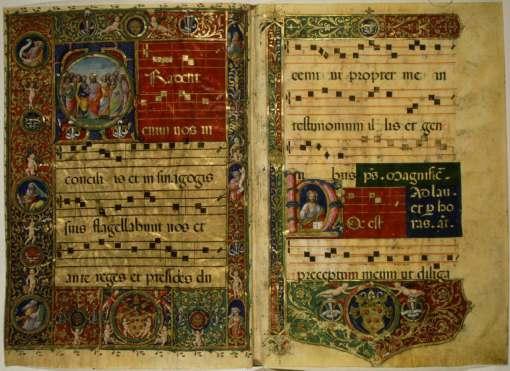 Tradent
enim vos in
concili is et in sinagogis
suis flagellabunt vos et
ante reges et presides du
cemini propter me in
testimonium il lis et gen
ti bus ps. Magnific̄.
Ad lau.
et p ho
ras. añ.
Hoc est
preceptum meum ut diliga